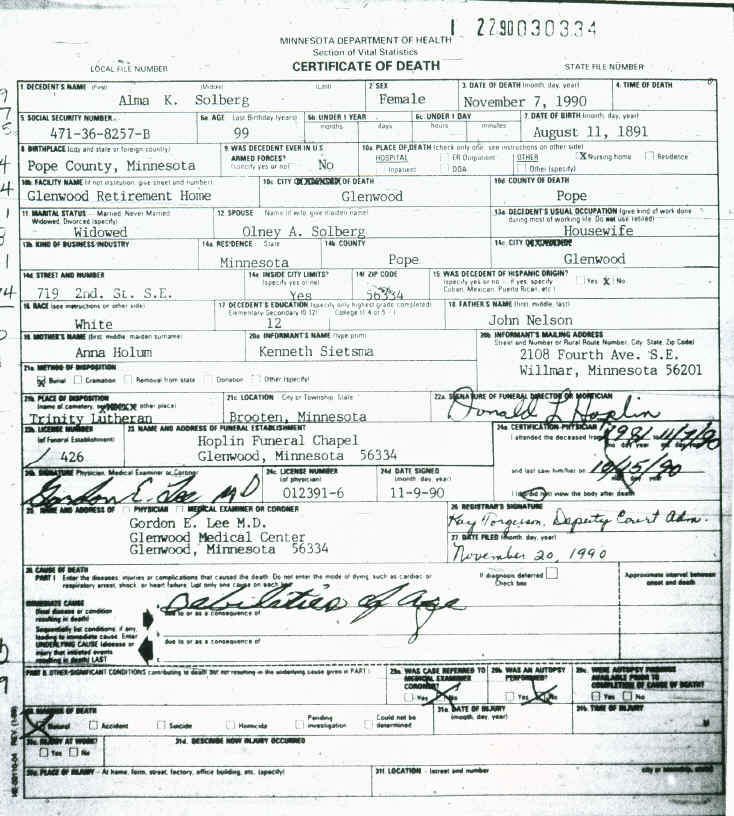 1 2290030334
MINNESOTA DEPARTMENT OF HEALTH
Section of Vital Statistics
LOCAL FILE NUMBER CERTIFICATE OF DEATH STATE FILE NUMBER
1 DECEDENT'S NAME (First) (Middle) (Last) 2 SEX 3. DATE OF DEATH (month, day, year) 4. TIME OF DEATH
Alma K. Solberg Female November 7, 1990
5 SOCIAL SECURITY NUMBER 6a AGE Last Birthday (years) 6b UNDER 1 YEAR 6c UNDER 1 DAY 7 DATE OF BIRTH (month, day, year)
months days hours minutes
471-36-8257-B 99 August 11, 1891
8 BIRTHPLACE (city and state or foreign country) 9 WAS DECEDENT EVER IN U.S. 10a PLACE OF DEATH (check only one: see instructions on other side)
ARMED FORCES? HOSPITAL ER Outpatient OTHER X Nursing home Residence
(specify yes or no) No Inpatient DOA Other (specify)
Pope County, Minnesota
10b FACILITY NAME (if not institution, give street and number) 10c CITY OF DEATH 10d COUNTY OF DEATH
Glenwood Retirement Home Glenwood Pope
11. MARITAL STATUS - Married, Never Married, 12. SPOUSE Name (if wife, give maiden name) 13a DECEDENT'S USUAL OCCUPATION (give kind of work done
Widowed, Divorced (specify) during most of working life. Do not use retired)
Widowed Olney A. Solberg Housewife
13b KIND OF BUSINESS/INDUSTRY 14a RESIDENCE State 14b COUNTY 14c CITY
Minnesota Pope Glenwood
14d STREET AND NUMBER 14e INSIDE CITY LIMITS? 14f ZIP CODE 15 WAS DECEDENT OF HISPANIC ORIGIN?
(specify yes or no) (specify yes or no - If yes, specify Yes X No
Cuban, Mexican, Puerto Rican, etc.)
719 2nd. St. S.E. Yes 56334
16 RACE (see instructions on other side) 17 DECEDENT'S EDUCATION (specify only highest grade completed) 18 FATHER'S NAME (first, middle, last)
Elementary Secondary (0 12) College (1 4 or 5+)
White 12 John Nelson
MOTHER'S NAME (first, middle, maiden surname) 20a INFORMANT'S NAME (type print) 20b INFORMANT'S MAILING ADDRESS
Street and Number or Rural Route Number, City, State, Zip Code)
Anna Holum Kenneth Sietsma 2108 Fourth Ave. S.E.
Willmar, Minnesota 56201
21a METHOD OF DISPOSITION
Burial Cremation Removal from state Donation Other (specify)
21b PLACE OF DISPOSITION 21c LOCATION City or Township, State 22a SIGNATURE OF FUNERAL DIRECTOR OR MORTICIAN
(name of cemetery, other place)
Trinity Lutheran Brooten, Minnesota Donald L Hoplin
LICENSE NUMBER 23 NAME AND ADDRESS OF FUNERAL ESTABLISHMENT 24a CERTIFICATION-PHYSICIAN
(of Funeral Establishment) I attended the deceased from 1981 to 11/7/90
mo day year
426 Hoplin Funeral Chapel
Glenwood, Minnesota 56334 and last saw him/her on 10/15/90
mo day year
24b SIGNATURE Physician, Medical Examiner or Coroner 24c LICENSE NUMBER 24d DATE SIGNED
(of physician) (month, day, year)
Gordon E. Lee MD 012391-6 11-9-90 I (did)(did not) view the body after death
25 NAME AND ADDRESS OF PHYSICIAN MEDICAL EXAMINER OR CORONER 26 REGISTRAR'S SIGNATURE
Gordon E. Lee M.D. Kay Torguson, Deputy Court Adm.
Glenwood Medical Center 27 DATE FILED (month, day, year)
Glenwood, Minnesota 56334 November 20, 1990
28. CAUSE OF DEATH
PART I Enter the diseases, injuries or complications that caused the death. Do not enter the mode of dying, such as cardiac or If diagnosis deferred Approximate interval between
respiratory arrest, shock, or heart failure. List only one cause on each line. Check box onset and death
IMMEDIATE CAUSE Debilities of Age
(final disease or condition due to or as a consequence of
resulting in death)
Sequentially list conditions, if any, b
leading to immediate cause. Enter due to or as a consequence of
UNDERLYING CAUSE (disease or
injury that initiated events c
resulting in death) LAST
PART II OTHER SIGNIFICANT CONDITIONS contributing to death but not resulting in the underlying cause given in PART I 29a WAS CASE REFERRED TO 29b WAS AN AUTOPSY 29c WERE AUTOPSY FINDINGS
MEDICAL EXAMINER PERFORMED? AVAILABLE PRIOR TO
CORONER? COMPLETION OF CAUSE OF DEATH?
Yes No Yes No Yes No
MANNER OF DEATH 31a DATE OF INJURY 31b TIME OF INJURY
Natural Accident Suicide Homicide Pending investigation Could not be determined (month, day, year)
M
31c INJURY AT WORK? 31d. DESCRIBE HOW INJURY OCCURRED
Yes No
31e PLACE OF INJURY - At home, farm, street, factory, office building, etc. (specify) 31f LOCATION - (street and number city or township, state)